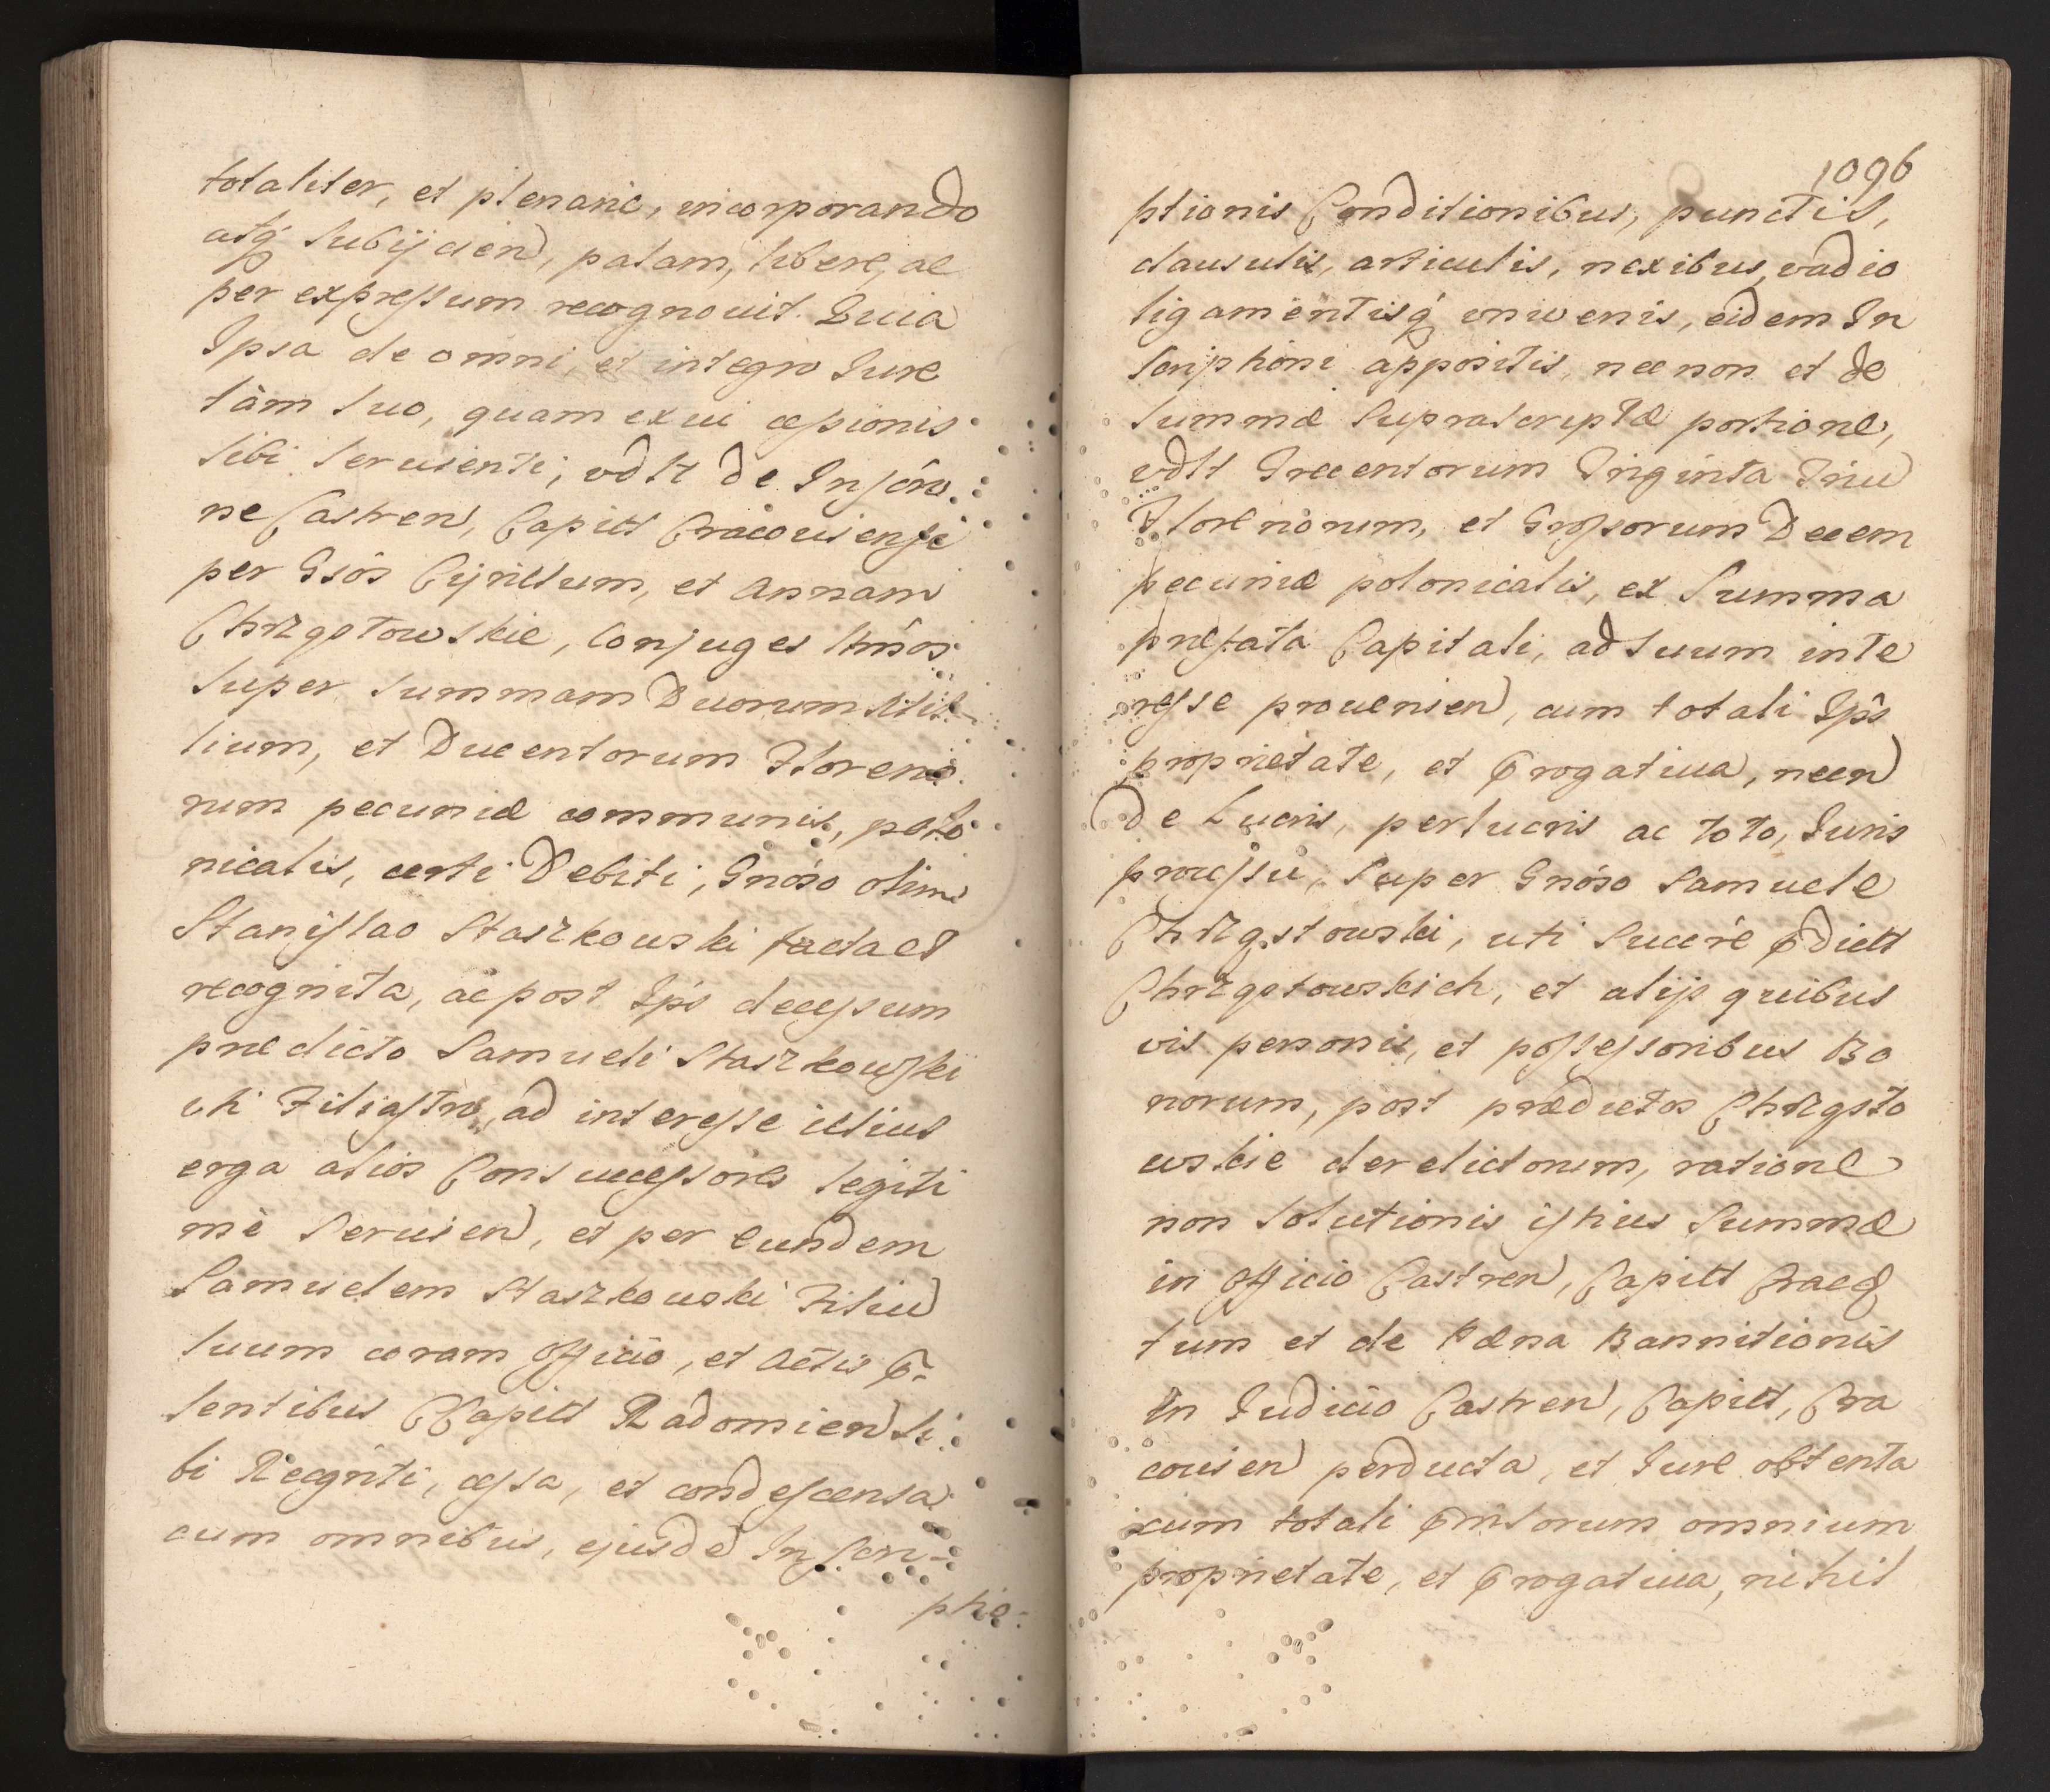 totaliter, et plenariè, incorporando
atq́ subijcien, palam, libere, ac
per expressum recognouit. Quia
Ipsa de omni, et integro Iure
tàm suo, quam ex ui cessionis
sibi seruienti, vdlt de Inscrip
ne Castren, Capitt Cracouiensi
per Gsos Cyrillum, et Annam
Chrzgstowskie, Conjuges
super summam Duorum Mil
lium, et Ducentorum Floreno
rum pecuniæ communis, polo
nicalis, certi Debiti, Gnóso olim
Stanislao Staszkowski facta et
recognita, ac post Ips̑ decessum
prædicto Samueli Staszkowski
uti Filiastro, ad interesse illius
erga alios Consuccessores legiti
mè seruien, et per eundem
Samuelem Staszkowski Filiū
suum coram Officio, et Actis P̄-
sentibus CCapitt Radomien si
bi Recgniti, cessa, et condescensa
cum omnibus, ejusdē Inscri-
ptio-
1096
ptionis Conditionibus, punctis,
clausulis, articulis, nexibus, vadio
ligamentisq́ universis, eidem In
scriptioni appositis, necnon et de
summæ suprascriptæ portione,
vdlt Trecentorum Triginta Triū
Florenorum, et Grossorum Decem
pecuniæ polonicalis, ex Summa
præfata Capitali, ad suum inte
resse prouenien, cum totali Ips̑
proprietate, et P̄rogatiua, necn
de Lucris, perlucris ac toto, Iuris
processu, super Gnóso Samuele
Chrzgstowski, uti Succ̑re P̄dictt
Chrzgstowskich, et alijs quibus
vis personis, et possessoribus Bo
norum, post prædictos Chrzgsto
wskie derelictorum, ratione
non solutionis istius Summæ
in Officio Castren, Capitt Crac
tum et de Pæna Bannitionis
In Iudicio Castren, Capitt, Cra
couien perducta, et Iure obtenta
cum totali P̄mssorum omnium
proprietate, et P̄rogatiua, nihil